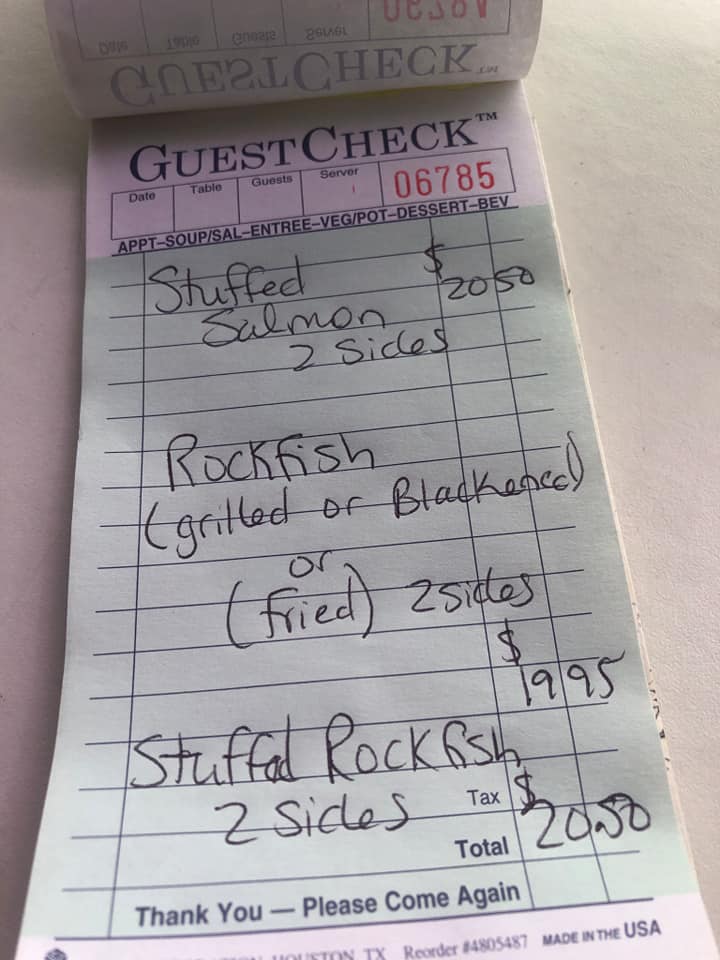 GUESTCHECK™
Date Table Guests Server 06785
APPT–SOUP/SAL–ENTREE–VEG/POT–DESSERT–BEV
Stuffed $ 20 50
Salmon
2 Sides
Rockfish
(grilled or Blackened)
or
(fried) 2 sides
$
19 95
Stuffed Rockfish
2 Sides Tax $
Total 20.50
Thank You — Please Come Again
HOUSTON, TX Reorder #4805487 MADE IN THE USA